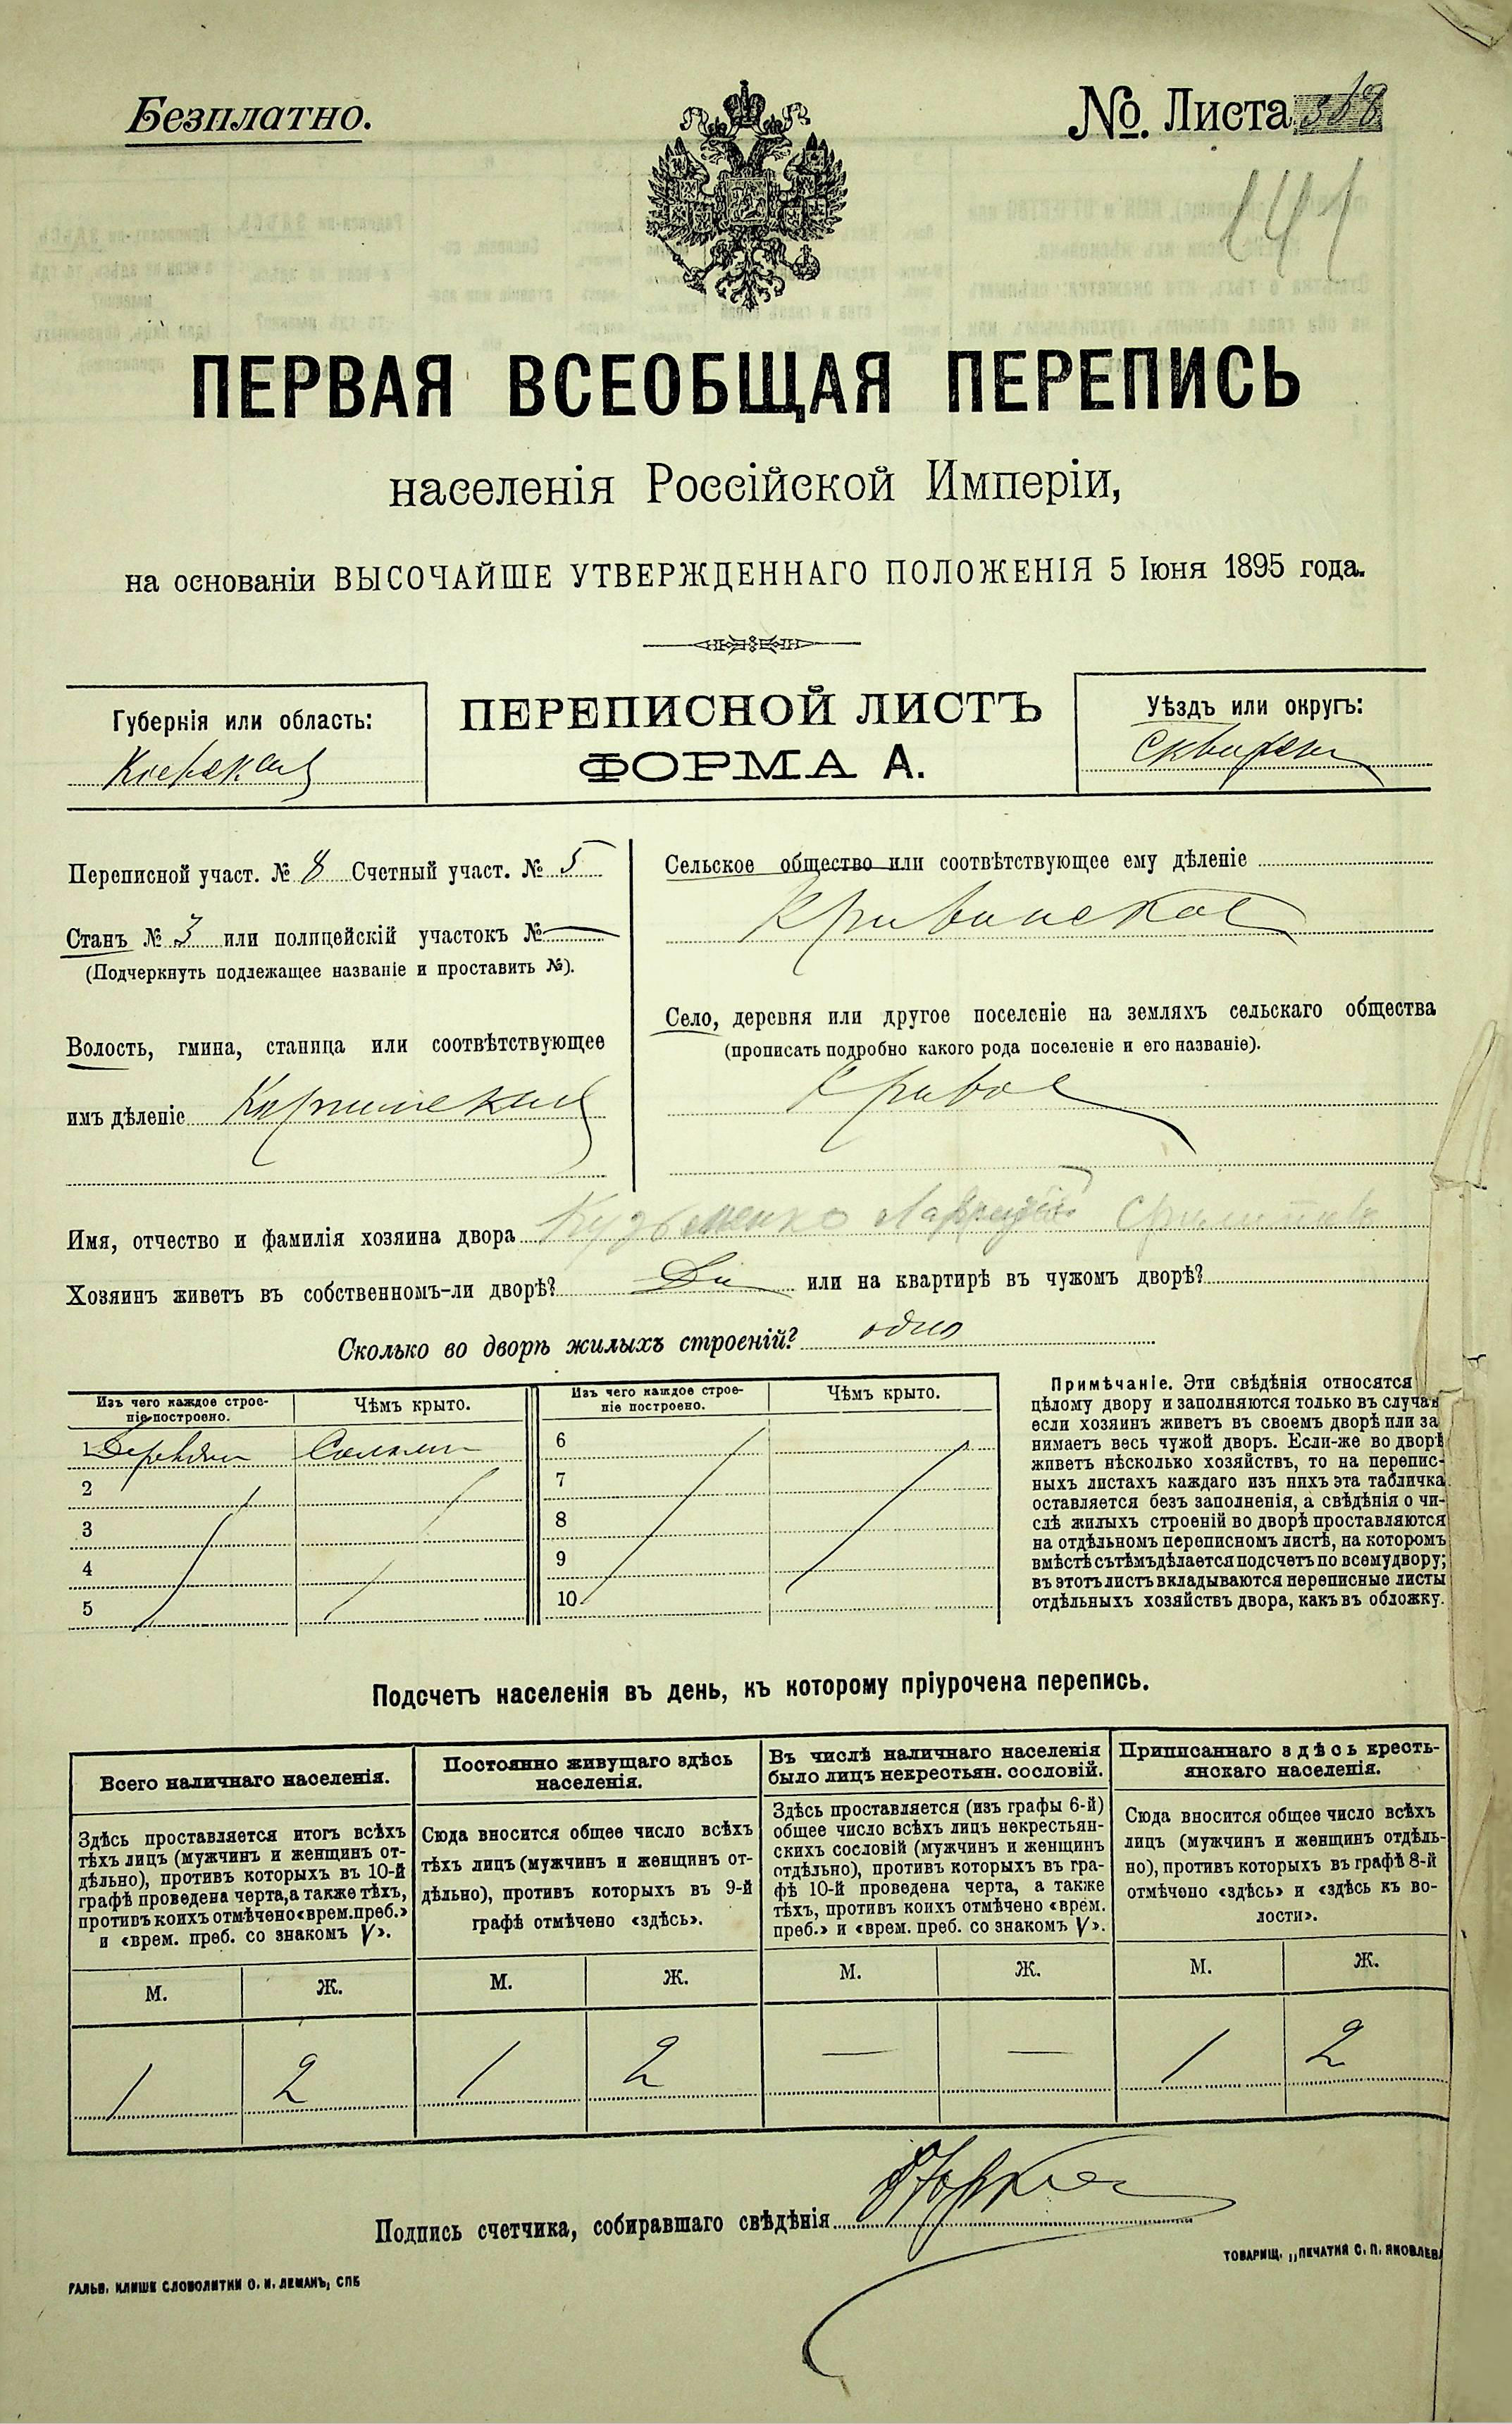 Безплатно.
№. Листа
141
ПЕРВАЯ ВСЕОБЩАЯ ПЕРЕПИСЬ
населенія Россійской Имперіи,
на основаніи ВЫСОЧАЙШЕ УТВЕРЖДЕННАГО ПОЛОЖЕНІЯ 5 Іюня 1895 года.
Губернія или область:
Кіевская
ПЕРЕПИСНОЙ ЛИСТЪ
ФОРМА А.
Уѣздъ или округъ:
Сквирскій
Переписной участ. № 8 Счетный участ. № 5
Станъ № 3 или полицейскій участокъ № —
(Подчеркнуть подлежащее названіе и проставить №).
Волость, гмина, станица или соотвѣтствующее
имъ дѣленіе
Сельское общество или соотвѣтствующее ему дѣленіе
Кривянское
Село, деревня или другое поселеніе на земляхъ сельскаго общества
(прописать подробно какого рода поселеніе и его названіе).
Кривое
Имя, отчество и фамилія хозяина двора Кузьменко
Хозяинъ живетъ въ собственномъ-ли дворѣ? Да или на квартирѣ въ чужомъ дворѣ?
Сколько во дворѣ жилыхъ строеній? одно
Изъ чего каждое строе-
ніе построено.
Чѣмъ крыто.
Изъ чего каждое строе-
ніе построено.
Чѣмъ крыто.
1
2
3
4
5
6
7
8
9
10
Примѣчаніе. Эти свѣдѣнія относятся
цѣлому двору и заполняются только въ случаѣ
если хозяинъ живетъ въ своемъ дворѣ или за
нимаетъ весь чужой дворъ. Если-же во дворѣ
живетъ нѣсколько хозяйствъ, то на перепис-
ныхъ листахъ каждаго изъ нихъ эта табличка
оставляется безъ заполненія, а свѣдѣнія о чи-
слѣ жилыхъ строеній во дворѣ проставляются
на отдѣльномъ переписномъ листѣ, на которомъ
вмѣстѣ съ тѣмъ дѣлается подсчетъ по всему двору;
въ этотъ листъ вкладываются переписные листы
отдѣльныхъ хозяйствъ двора, какъ въ обложку.
Подсчетъ населенія въ день, къ которому пріурочена перепись.
Всего наличнаго населенія.
Здѣсь проставляется итогъ всѣхъ
тѣхъ лицъ (мужчинъ и женщинъ от-
дѣльно), противъ которыхъ въ 10-й
графѣ проведена черта, а также тѣхъ,
противъ коихъ отмѣчено «врем. преб.»
и «врем. преб. со знакомъ V».
М.
Ж.
1
2
Постоянно живущаго здѣсь
населенія.
Сюда вносится общее число всѣхъ
тѣхъ лицъ (мужчинъ и женщинъ от-
дѣльно), противъ которыхъ въ 9-й
графѣ отмѣчено «здѣсь».
М.
Ж.
1
2
Въ числѣ наличнаго населенія
было лицъ некрестьян. сословій.
Здѣсь проставляется (изъ графы 6-й)
общее число всѣхъ лицъ некрестьян-
скихъ сословій (мужчинъ и женщинъ
отдѣльно), противъ которыхъ въ гра-
фѣ 10-й проведена черта, а также
тѣхъ, противъ коихъ отмѣчено «врем.
преб.» и «врем. преб. со знакомъ V».
М.
Ж.
—
—
Приписаннаго здѣсь кресть-
янскаго населенія.
Сюда вносится общее число всѣхъ
лицъ (мужчинъ и женщинъ отдѣль-
но), противъ которыхъ въ графѣ 8-й
отмѣчено «здѣсь» и «здѣсь къ во-
лости».
М.
Ж.
1
2
Подпись счетчика, собиравшаго свѣдѣнія
ГАЛЬВ. КЛИШЕ СЛОВОЛИТНИ О. И. ЛЕМАНЪ, СПБ
ТОВАРИЩ. „ПЕЧАТНЯ С. П. ЯКОВЛЕВА